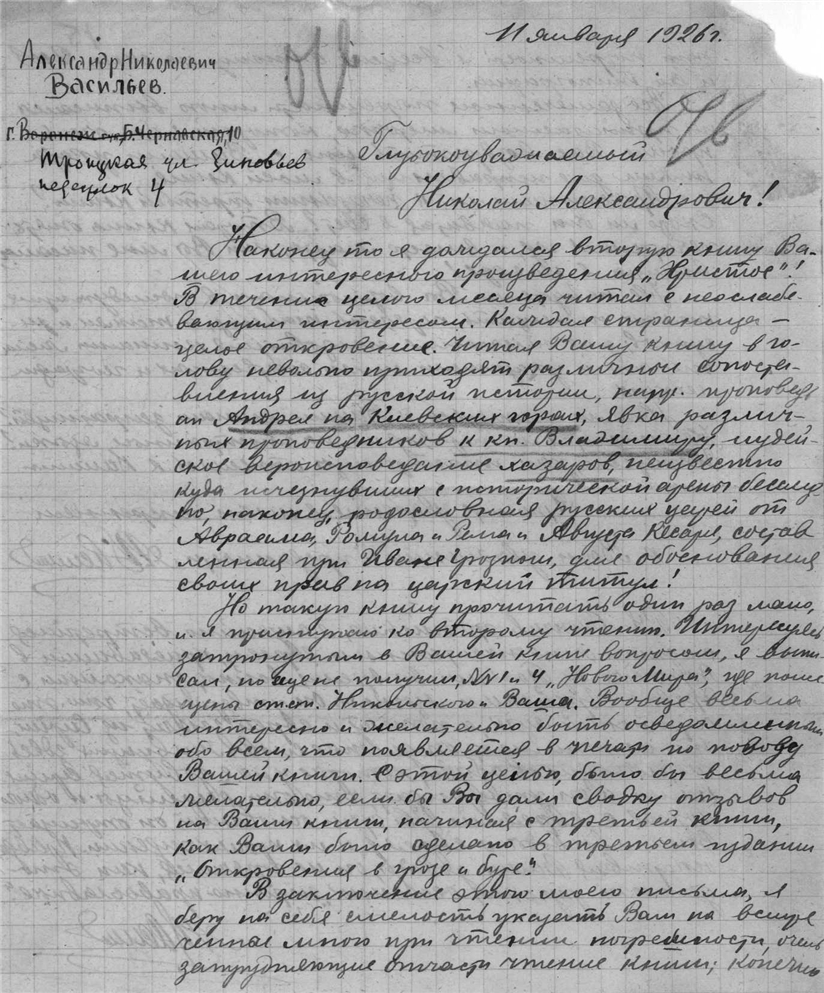 11 января 1926 г.
Александр Николаевич
Васильев.
г. Воронеж Б. Чернавская, 10
Троицкая ул. Зиновьев
переулок 4
Глубокоуважаемый
Николай Александрович!
Наконец то я дождался вторую книгу Ва-
шего интересного произведения „Христос"!
В течение целого месяца читал с неослабе-
вающим интересом. Каждая страница —
целое откровение. Читая Вашу книгу в го-
лову невольно приходят различные сопоста-
вления из русской истории, напр. проповедь
ап Андрея на Киевских горах, явка различ-
ных проповедников к кн. Владимиру, иудей-
ское вероисповедание хазаров, неизвестно
куда исчезнувших с исторической арены
но, наконец, родословная русских царей от
Авраама, Ромула и Рема и Августа Кесаря, состав
ленная при Иване Грозном, для обоснования
своих прав на царский титул!
Но такую книгу прочитать один раз мало,
и я приступаю ко второму чтению. Интересуясь
затронутым в Вашей книге вопросом, я выпи-
сал, но еще не получил, №№ 1 и 4 „Нового Мира", где поме
щены стат. Никольского и Ваша. Вообще весьма
интересно и желательно быть осведомленным
обо всем, что появляется в печати по поводу
Вашей книги. С этой целью, было бы весьма
желательно, если бы Вы дали сводку отзывов
на Ваши книги, начиная с третьей книги,
как Вами было сделано в третьем издании
„Откровения в грозе и буре".
В заключение этого моего письма, я
беру на себя смелость указать Вам на встре
ченные мною при чтении погрешности, очень
затрудняющие отчасти чтение книги; конечно